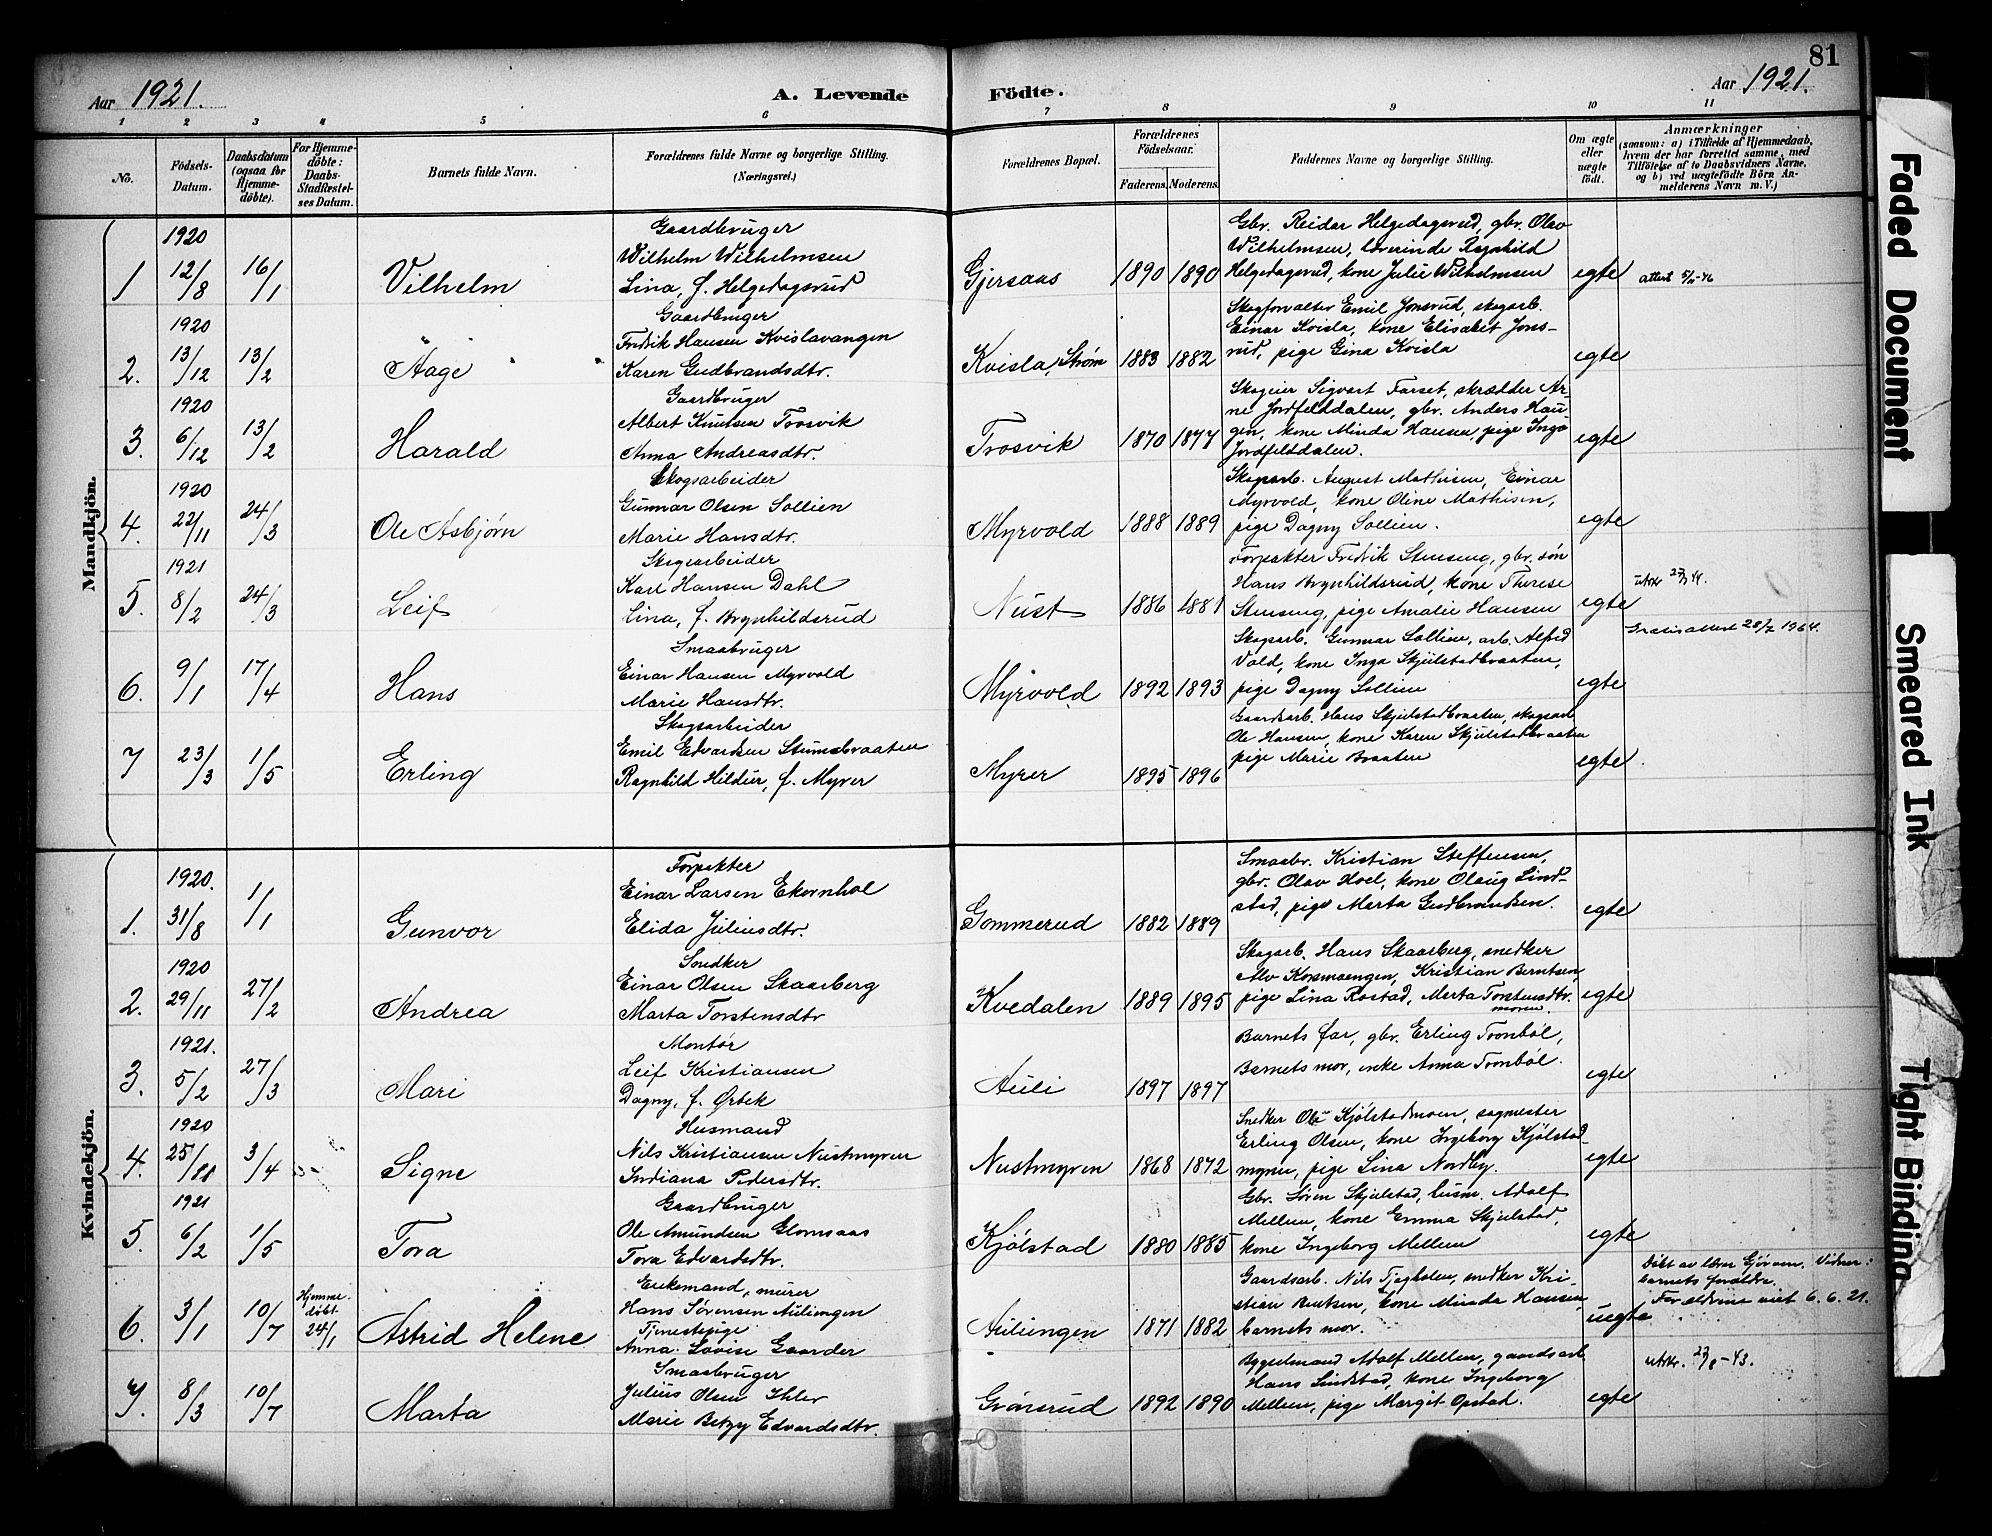 81
Aar 1921.
A. Levende Födte.
Aar 1921.
1 2 3 4 5 6 7 8 9 10 11
No.
Födsels-Datum.
Daabsdatum (ogsaa for Hjemme-döbte).
For Hjemme-döbte: Daabs-Stadfæstel-ses Datum.
Barnets fulde Navn.
Forældrenes fulde Navne og borgerlige Stilling.
(Næringsvei.)
Forældrenes Bopæl.
Forældrenes Födselsaar.
Faderens. Moderens.
Faddernes Navne og borgerlige Stilling.
Om ægte eller uægte födt.
Anmærkninger
(saasom: a) i Tilfælde af Hjemmedaab, hvem der har forrettet samme, med Tilföielse af to Daabsvidners Navne, og b) ved uægtefödte Börn Anmelderens Navn m. V.)
Mandkjön.
1 1920 12/8 16/1 Vilhelm
Gaardbruger
Wilhelm Wilhelmsen
Lina, f. Helgedagsrud
Gjersaas 1890 1890
Gbr. Reidar Helgedagsrud, gbr. Olav
Wilhelmsen, lærerinde Ragnhild
Helgedagsrud, kone Julie Wilhelmsen
egte
2. 1920 13/12 13/2 Aage
Gaardbruger
Fredrik Hansen Kvislavangen
Karen Gudbrandsdtr.
Kvisla, Strøm 1883 1882
Skogforvalter Emil Jonsrud, skogarb.
Einar Kvisla, kone Elisabet Jons-
rud, pige Gina Kvisla
egte
3. 1920 6/12 13/2 Harald
Gaardbruger
Albert Knutsen Trosvik
Anna Andreasdtr.
Trosvik 1870 1877
Skogeier Sigvart Farset, skrædder Ar-
ne Jordfeltdalen, gbr. Anders Hau-
gen, kone Minda Hansen, pige Inga
Jordfeltdalen.
egte
4. 1920 22/11 24/3 Ole Asbjørn
Skogsarbeider
Gunnar Olsen Sollien
Marie Hansdtr.
Myrvold 1888 1889
Skogarb. August Mathisen, Einar
Myrvold, kone Oline Mathisen,
pige Dagny Sollien.
egte
5. 1921 8/2 24/3 Leif
Skogsarbeider
Karl Hansen Dahl
Lina, f. Brynhildsrud
Nust 1886 1881
Forpakter Fredrik Stensing, gbr. søn
Hans Brynhildsrud, kone Therese
Stensing, pige Amalie Hansen
egte
6. 9/1 17/4 Hans
Smaabruger
Einar Hansen Myrvold
Marie Hansdtr.
Myrvold 1892 1893
Skogsarb. Gunnar Sollien, arb. Alfred
Vold, kone Inga Skjelstadbraaten,
pige Dagny Sollien
egte
Gratis attest 28/7 1964.
7 23/3 1/5 Erling
Skogsarbeider
Emil Edvardsen Stumsbraaten
Ragnhild Hildur, f. Myrer
Myrer 1895 1896
Gaardsarb. Hans Skjelstadbraaten, skogsarb
Ole Hansen, kone Karen Skjelstadbraaten
pige Marie Braaten
egte
Kvindekjön.
1. 1920. 31/8 1/1 Gunvor
Forpakter
Einar Larsen Ekornhol
Elida Juliusdtr.
Gommerud 1882 1889
Smaabr. Kristian Steffensen,
gbr. Olav Hoel, kone Olaug Lind-
stad, pige Marta Gudbrandsen.
egte
2. 1920 29/11 27/2 Andrea
Snedker
Einar Olsen Skaarberg
Marta Torstensdtr
Kvedalen 1889 1895
Skogsarb. Hans Skaarberg, snedker
Alv Kosmoengen, Kristian Berntsen,
pige Lina Rostad, Marta Torstensdtr.
moren.
egte
3. 1921. 5/2 27/3 Mari
Montør
Leif Kristiansen
Dagny, f. Ørbek
Auli 1897 1897
Barnets far, gbr. Erling Trønbøl,
Barnets mor, enke Anna Trønbøl.
egte
4. 1920 25/11 3/4 Signe
Husmand
Nils Kristiansen Nustmyren
Indiana Pedersdtr.
Nustmyren 1868 1872
Snedker Ole Kjølstadmoen, sagmester
Erling Olsen, kone Ingeborg Kjølstad-
myren, pige Lina Nordby.
egte
5. 1921 6/2 1/5 Tora
Gaardbruger
Ole Amundsen Glomsaas
Tora Edvardsdtr.
Kjølstad 1880 1885
Gbr. Søren Skjelstad, husm. Adolf
Mellem, kone Emma Skjelstad,
kone Ingeborg Mellem
egte
6. 3/1 10/7 Hjemme-døbt 24/1 Astrid Helene
Enkemand, murer
Hans Sørensen Auliengen
Tjenestepige
Anna Lovise Gaarder
Auliengen 1871 1882
Gaardsarb. Nils Tjagholen, snedker Kri-
stian Bentsen, kone Minda Hansen,
barnets mor.
uegte
Døbt av lærer Gjørven. Vidner:
barnets forældre.
Forældrene viet 6.6.21.
7. 8/3 10/7 Marta
Smaabruger
Julius Olsen Ihler
Marie Betzy Edvardsdtr.
Grønsrud 1892 1890
Bygselmand Adolf Mellem, gaardsarb.
Hans Lindstad, kone Ingeborg
Mellem, pige Margit Opstad.
egte
utskr. 27/8-43.
Faded Document
Smeared Ink
Tight Binding